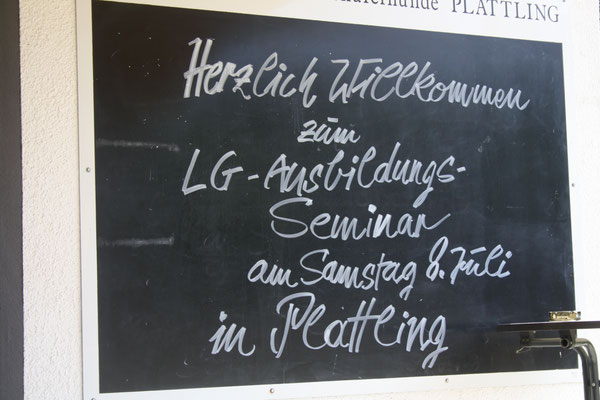 PLATTLING
Herzlich Willkommen
zum
LG-Ausbildungs-
Seminar
am Samstag 8. Juli
in Plattling